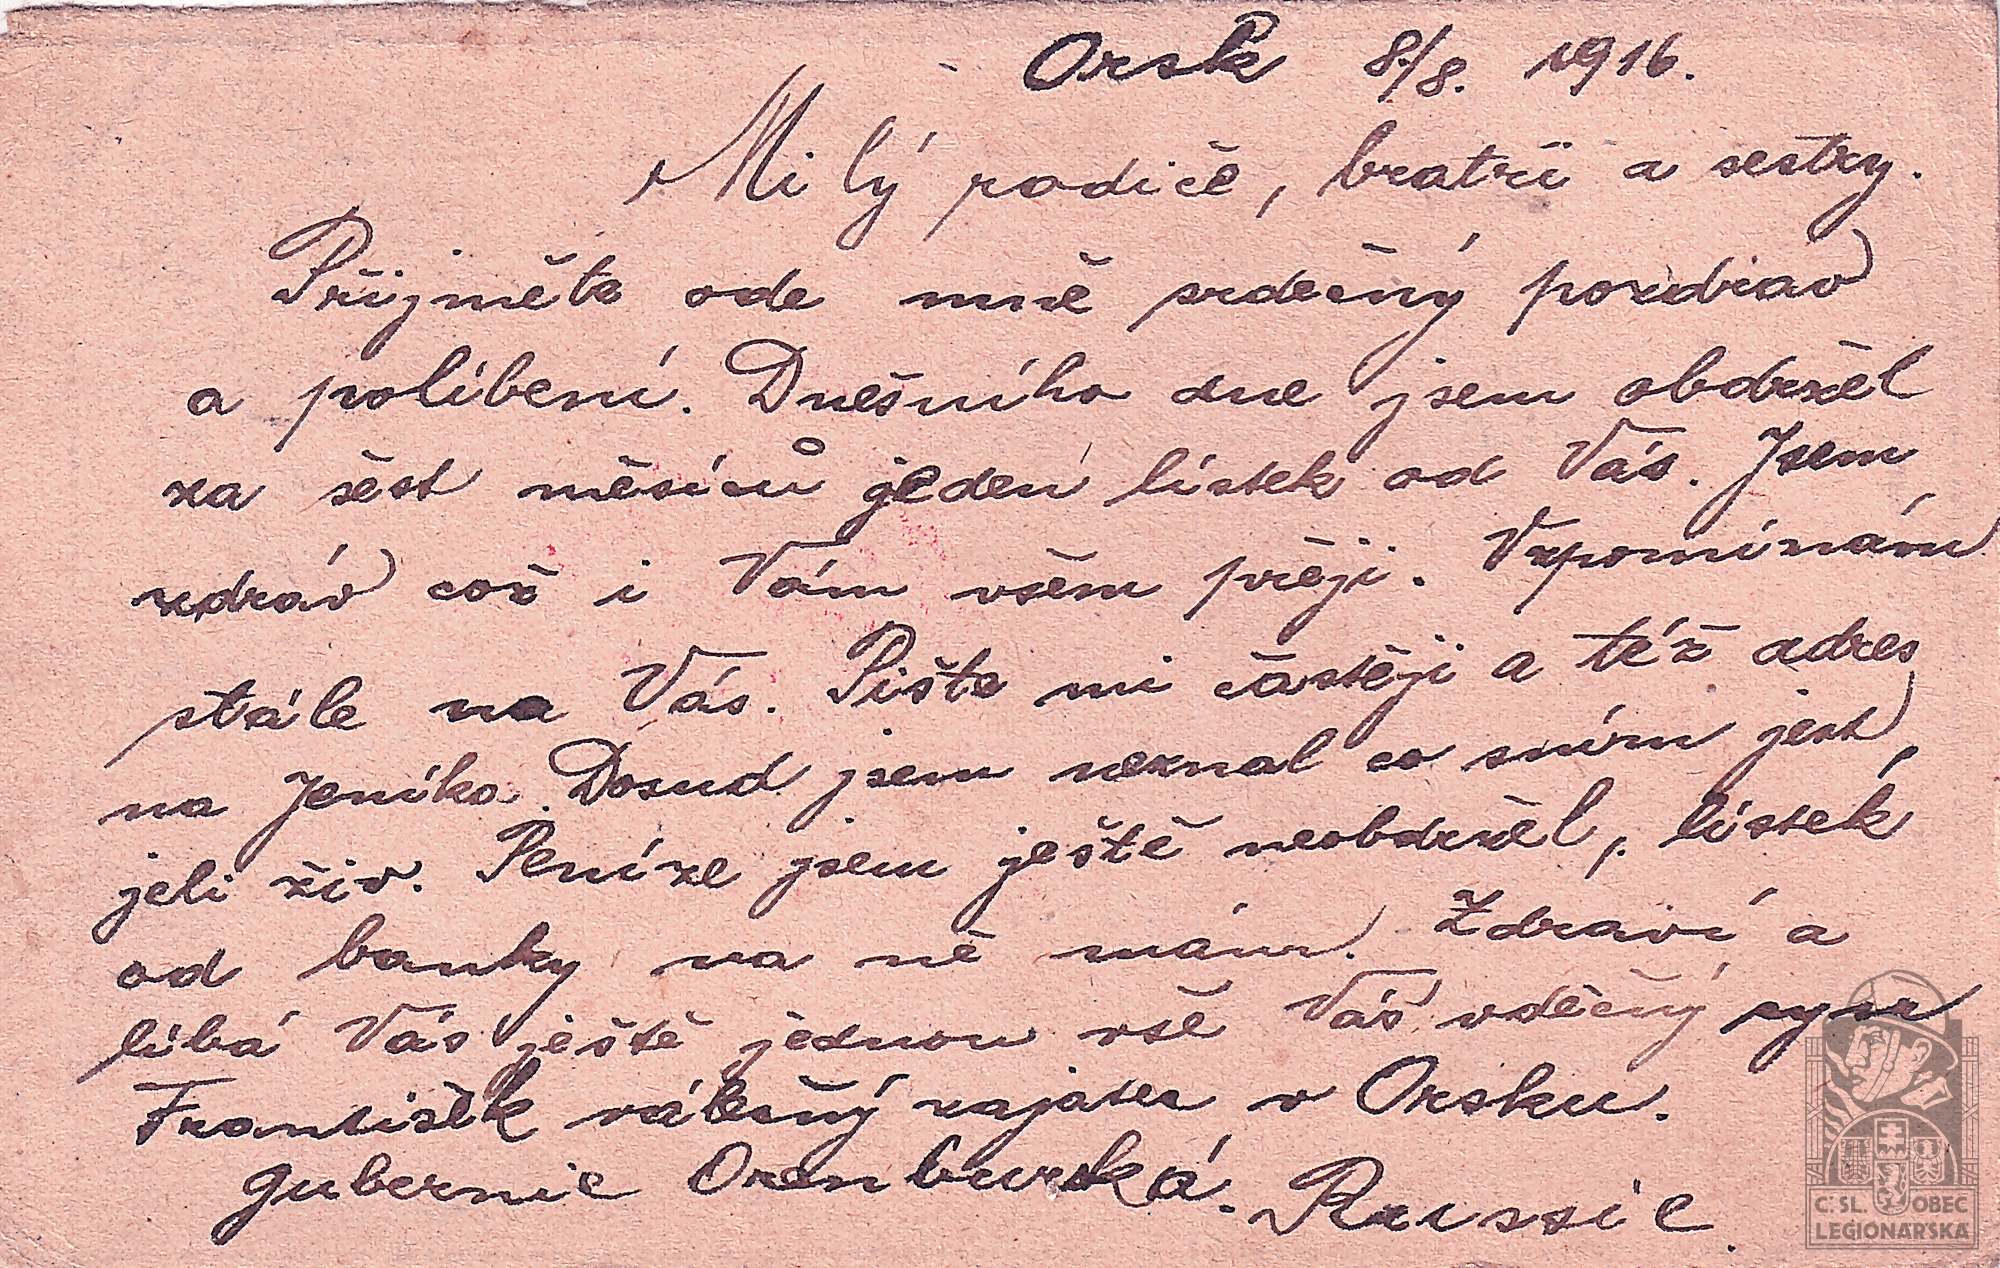 Orsk 8/8. 1916.
Milý rodiče, bratři a sestry.
Přijměte ode mně srdečný pozdrav
a políbení. Dnešního dne jsem obdržel
za šest měsíců jeden lístek od Vás. Jsem
zdráv což i Vám všem přeji. Vzpomínám
stále na Vás. Pište mi častěji a též adres
na Jeníka. Dosud jsem neznal co sním jest,
jeli živ. Peníze jsem ještě neobdržel, lístek
od banky na ně mám. Zdraví a
líbá Vás ještě jednou vše Váš vděčný syn
František válečný zajatec v Orsku.
gubernie Orenburská. Russie.
Č:SL. OBEC
LEGIONÁŘSKÁ